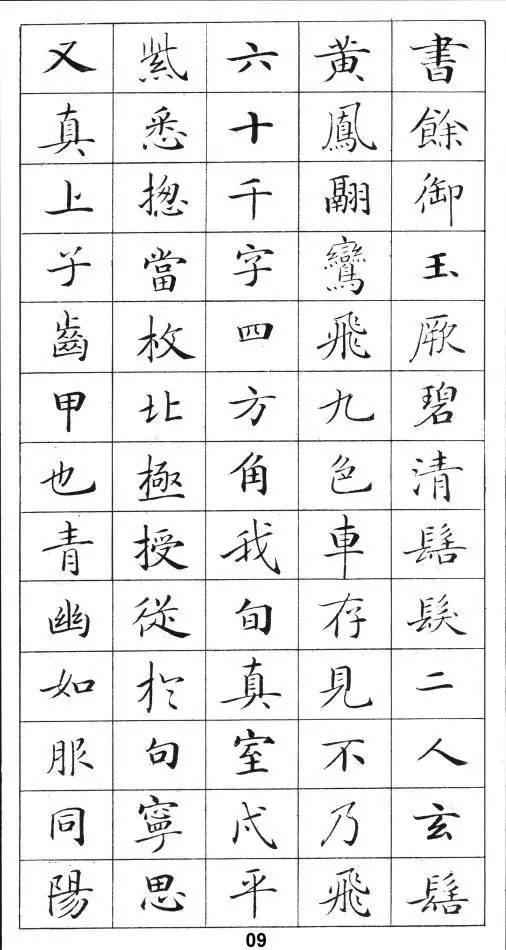 書餘御玉厥碧清髻髮二人玄髻
黃鳳翩鸞飛九色車存見不乃飛
六十千字四方角我旬真室戌平
紫悉揔當枚北極授從於句寧思
又真上子齒甲也青幽如服同陽
09